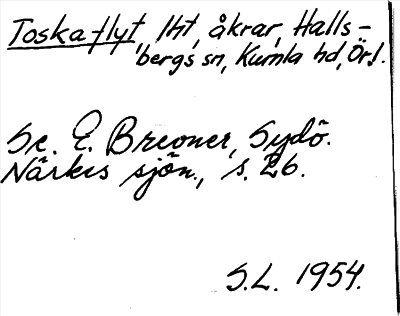 Toskaflyt, lht, åkrar, Halls-
bergs sn, Kumla hd, Ör l.
Se E. Brenner, Sydö.
Närkes sjön., s. 26.
S.L. 1954.